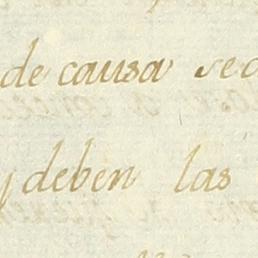 de causa se
y deben las